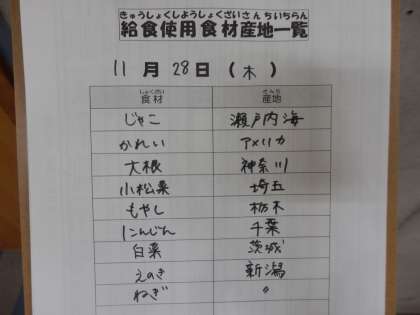 きゅうしょくしようしょくざいさんちいちらん
給食使用食材産地一覧
11月28日(木)
しょくざい さんち
食材 産地
じゃこ 瀬戸内海
かれい アメリカ
大根 神奈川
小松菜 埼玉
もやし 栃木
にんじん 千葉
白菜 茨城
えのき 新潟
ねぎ 〃